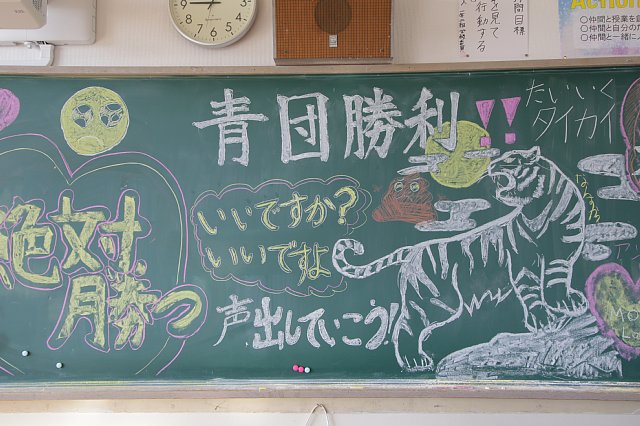 青団勝利!!
たいいく
タイカイ
絶対
勝つ
いいですか?
いいですよ
声出していこう!!
Action
○仲間と授業を
○仲間と自分の
○仲間と一緒に
目標
見て
行動する